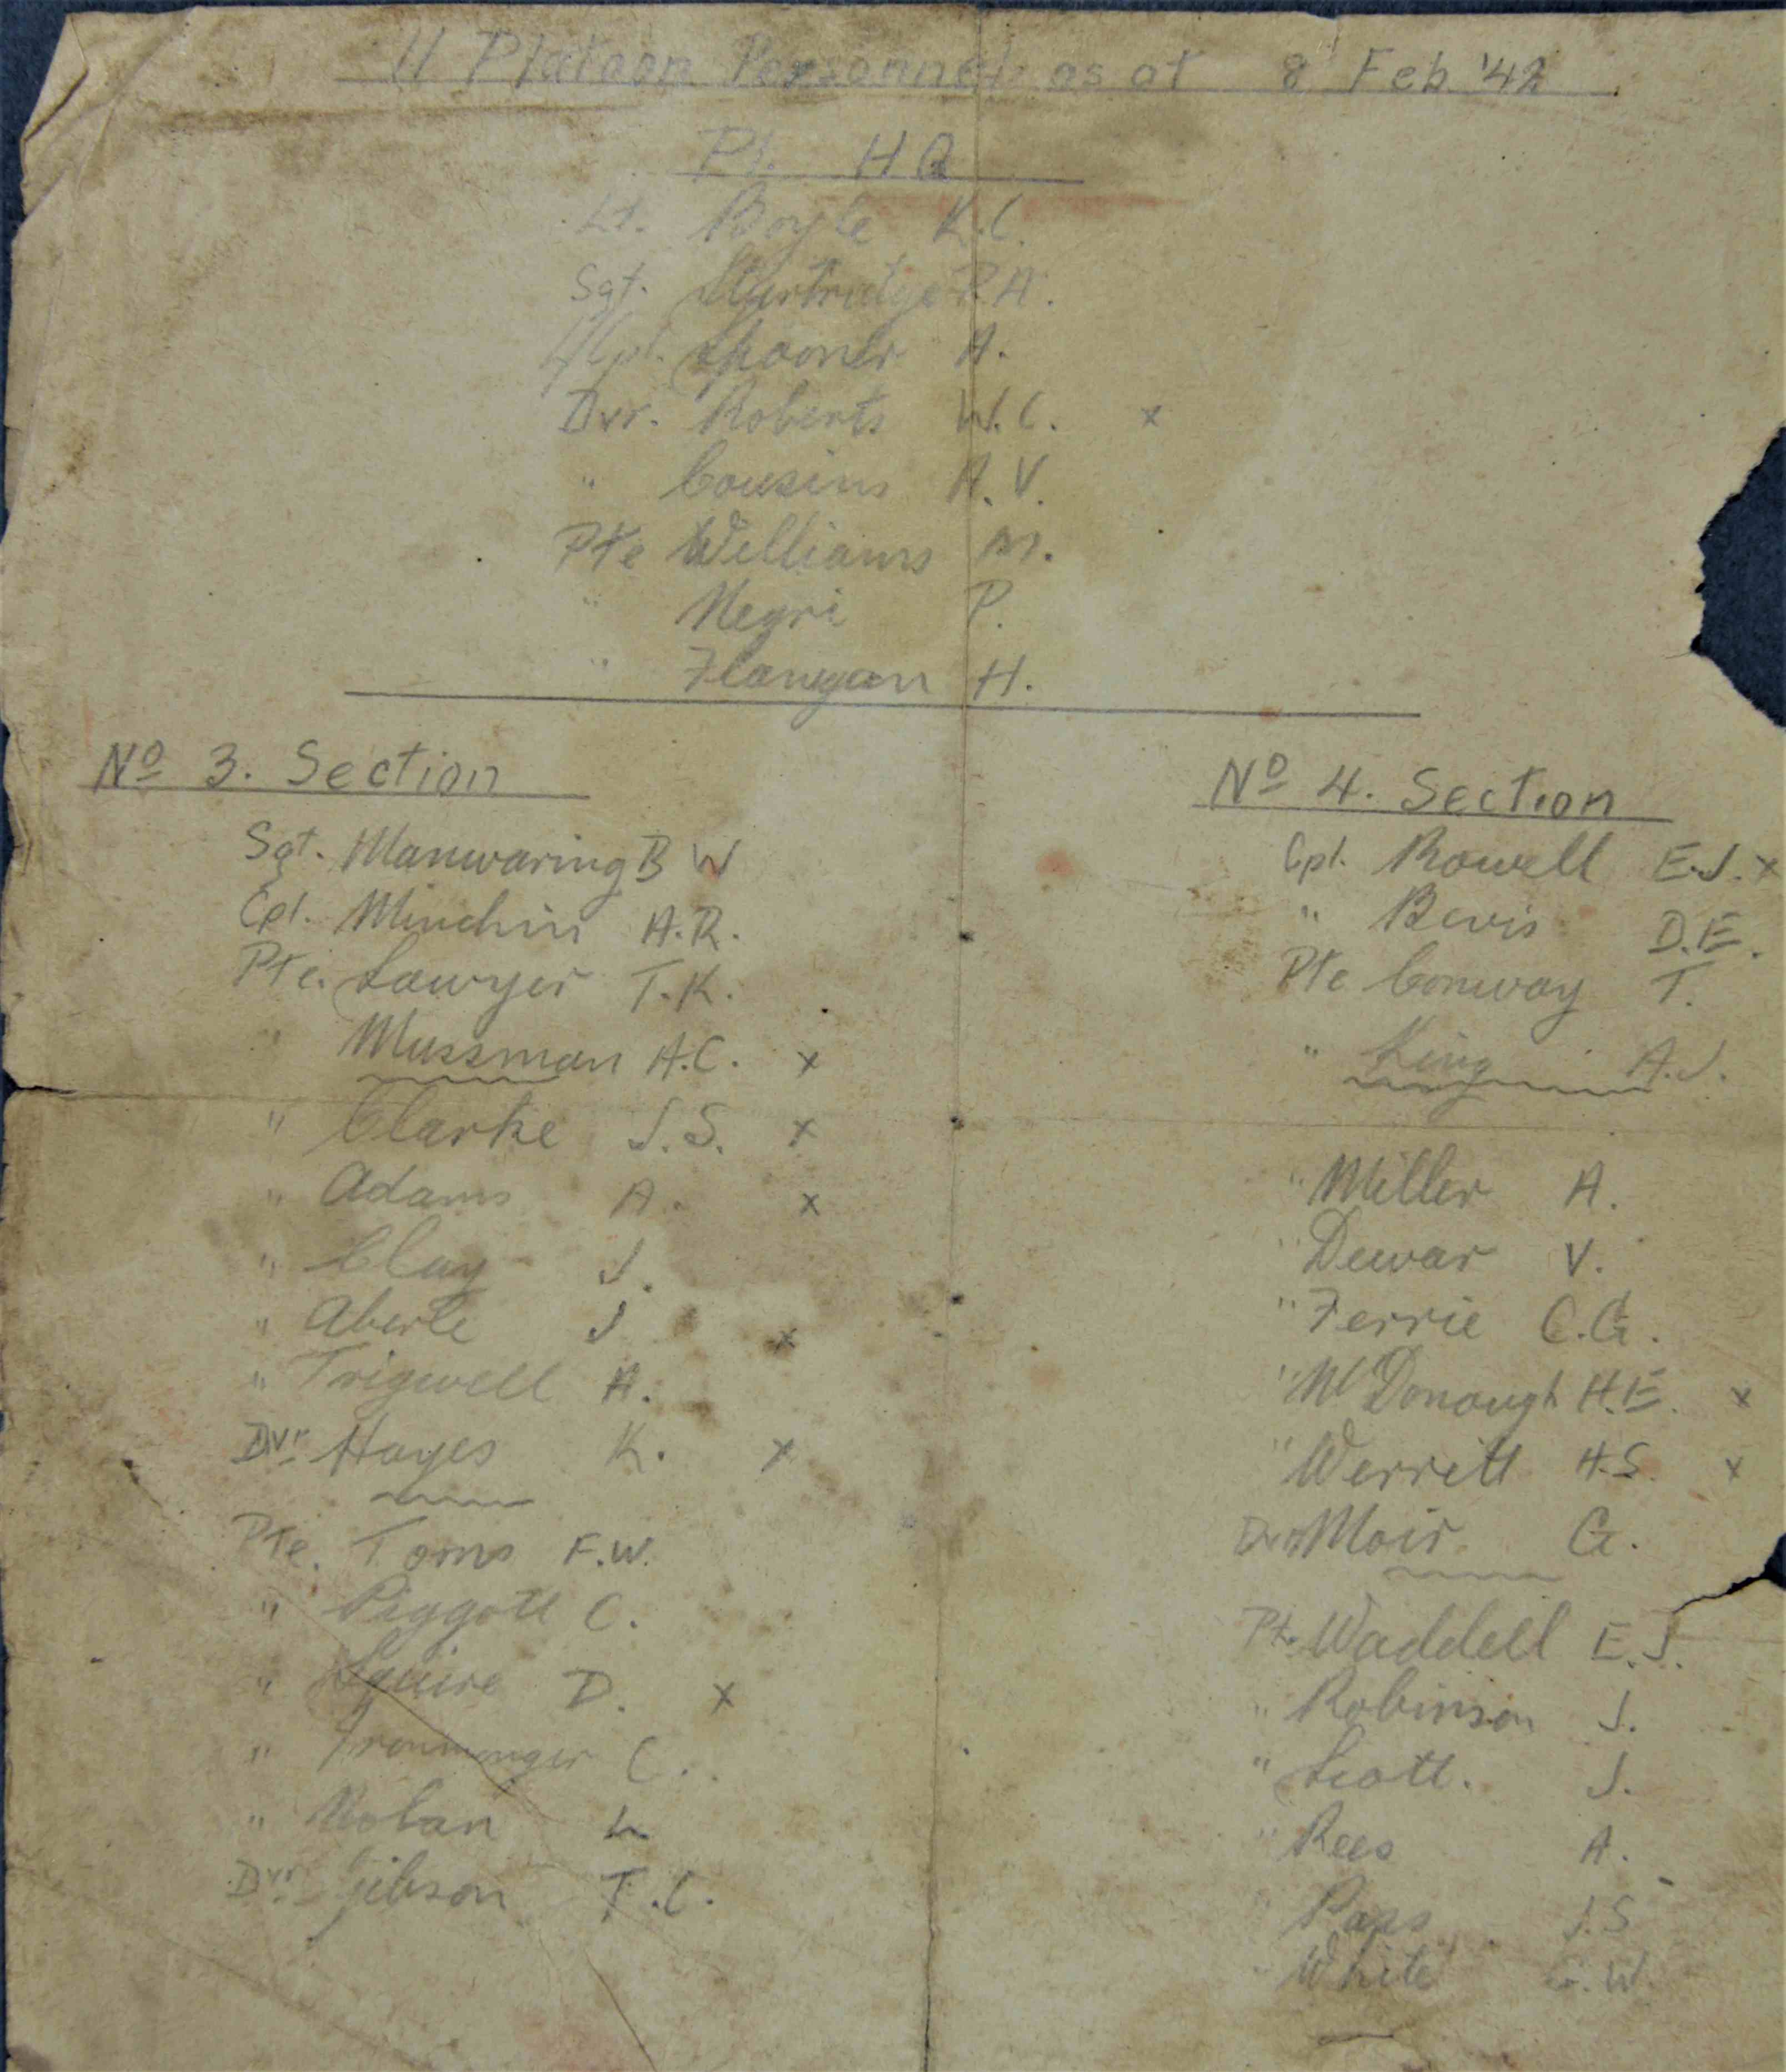 11 Platoon Personnel as at 8 Feb '42
Pl. HQ
Lt. Boyle K.C.
Sgt. R.A.
L/Cpl. Spooner A.
Dvr. Roberts W.C. x
" Cousins A.V.
Pte Williams M.
" Negri P.
" Flanygan H.
No 3. Section
Sgt. Manwaring B W
Cpl. Minchin A.R.
Pte. Sawyer T.K.
" Mussman A.C. x
" Clarke J.S. x
" Adams A. x
" Clay J.
" Aberle J x
" Trigwell A.
Dvr Hayes K. x
Pte. Toms F.W.
" Piggott C.
" Squire D. x
" Ironmonger C.
" Nolan L
Dvr Gibson T.C.
No 4. Section
Cpl. Rowell E.J. x
" Bevis D.E.
Pte Conway T.
" King A.J.
" Miller A.
" Dewar V.
" Ferrie C.G.
" McDonough H.E. x
" Werrett H.S. x
Dvr Moir G.
Pte Waddell E.J.
" Robinson J.
" Scott. J.
" Rees A.
" Paps J.S
" White G.W.